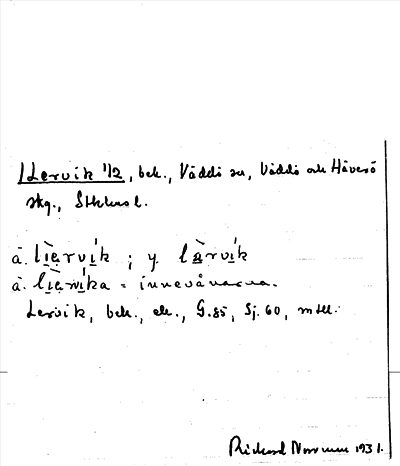 Lervik 1/2, beb., Väddö sn, Väddö och Häverö
skg., Sthlms l.
ä. lìęrvík ; y. lầrvík
ä. lìęrvika = innevånarna.
Lervik, beb., ek., G.85, Sj. 60, mtll.
Rickard Norrman 1931.